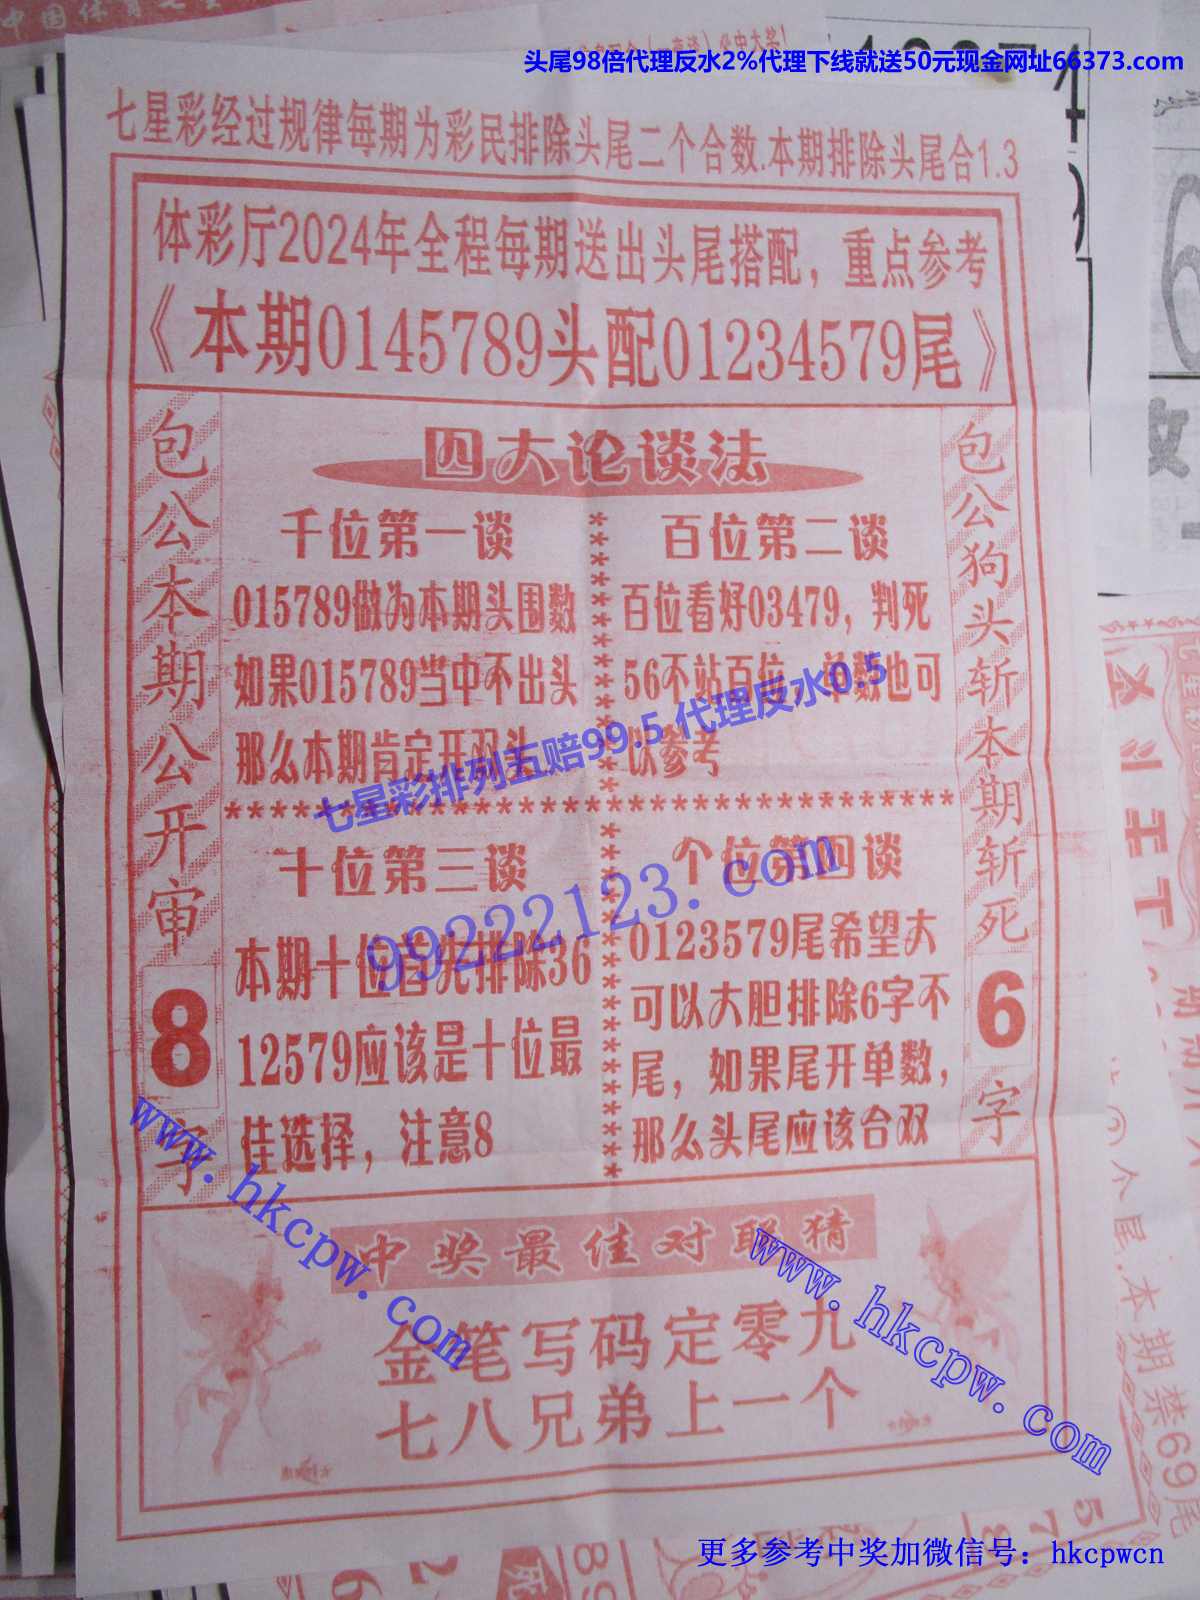 头尾98倍代理反水2%代理下线就送50元现金网址66373.com
七星彩经过规律每期为彩民排除头尾二个合数.本期排除头尾合1.3
体彩厅2024年全程每期送出头尾搭配，重点参考
《本期0145789头配01234579尾》
包公本期公开审
8
字
四大论谈法
千位第一谈
015789做为本期头围数
如果015789当中不出头
那么本期肯定开双头
百位第二谈
百位看好03479，判死
56不站百位，单数也可
以参考
七星彩排列五赔99.5 代理反水0.5
99222123.com
十位第三谈
本期十位首先排除36
12579应该是十位最
佳选择，注意8
个位第四谈
0123579尾希望大
可以大胆排除6字不
尾，如果尾开单数，
那么头尾应该合双
包公狗头斩本期斩死
6
字
www.hkcpw.com
中奖最佳对联猜
www.hkcpw.com
金笔写码定零九
七八兄弟上一个
个尾.本期禁69尾
更多参考中奖加微信号：hkcpwcn